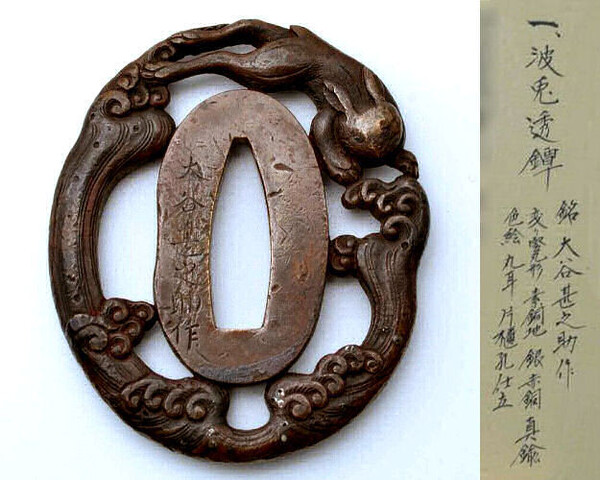 一、波兎透鐔
銘 大谷甚之助作
変り竪形 素銅地 銀 赤銅 真鍮
色絵 丸耳 片櫃孔仕立
大谷甚之助作